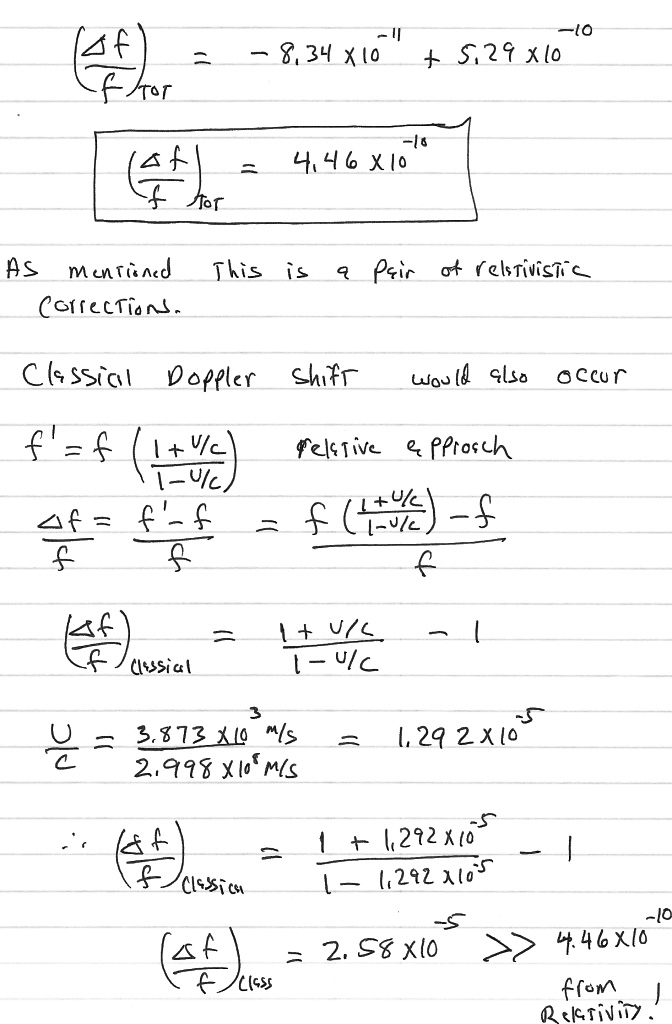 (Δf/f)TOT = - 8.34 x 10^-11 + 5.29 x 10^-10
(Δf/f)TOT = 4.46 x 10^-10
As mentioned This is a Pair of relativistic
Corrections.
Classical Doppler shift would also occur
f' = f (1 + U/c / 1 - U/c) relative approach
Δf/f = f' - f / f = f (1 + U/c / 1 - U/c) - f / f
(Δf/f)Classical = 1 + U/c / 1 - U/c - 1
U/c = 3.873 x 10^3 m/s / 2.998 x 10^8 m/s = 1.292 x 10^-5
∴ (Δf/f)Classical = 1 + 1.292 x 10^-5 / 1 - 1.292 x 10^-5 - 1
(Δf/f)Class = 2.58 x 10^-5 >> 4.46 x 10^-10
from
Relativity!